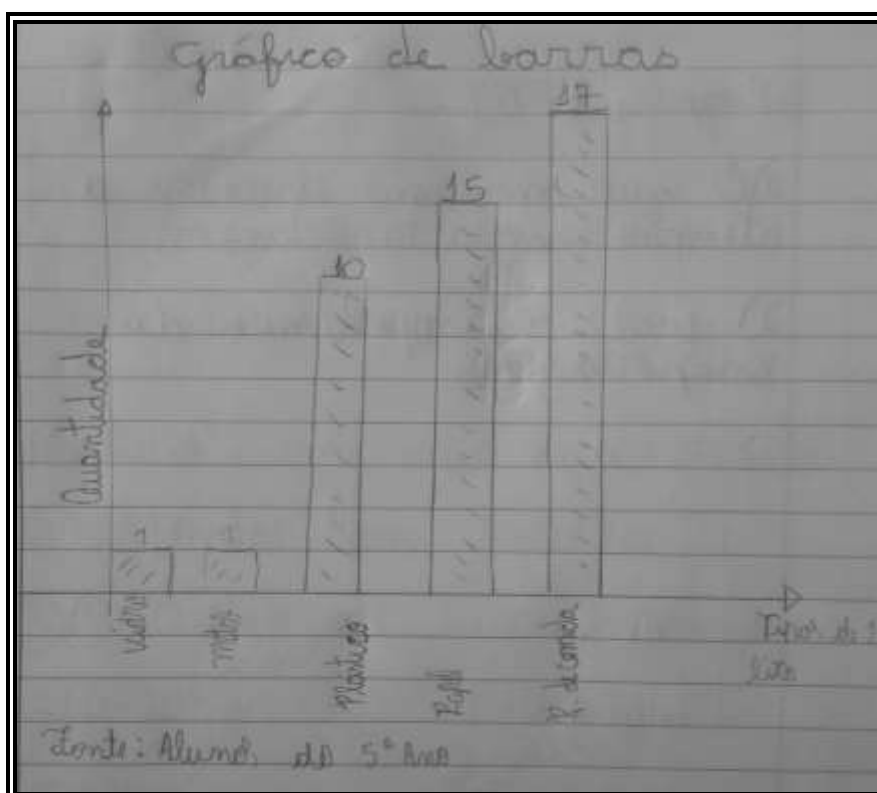 Gráfico de barras
17
15
10
Quantidade
1 1
Vidro
Plástico
Papel
R. de comida
Tipos de
Fonte: Alunos do 5º Ano